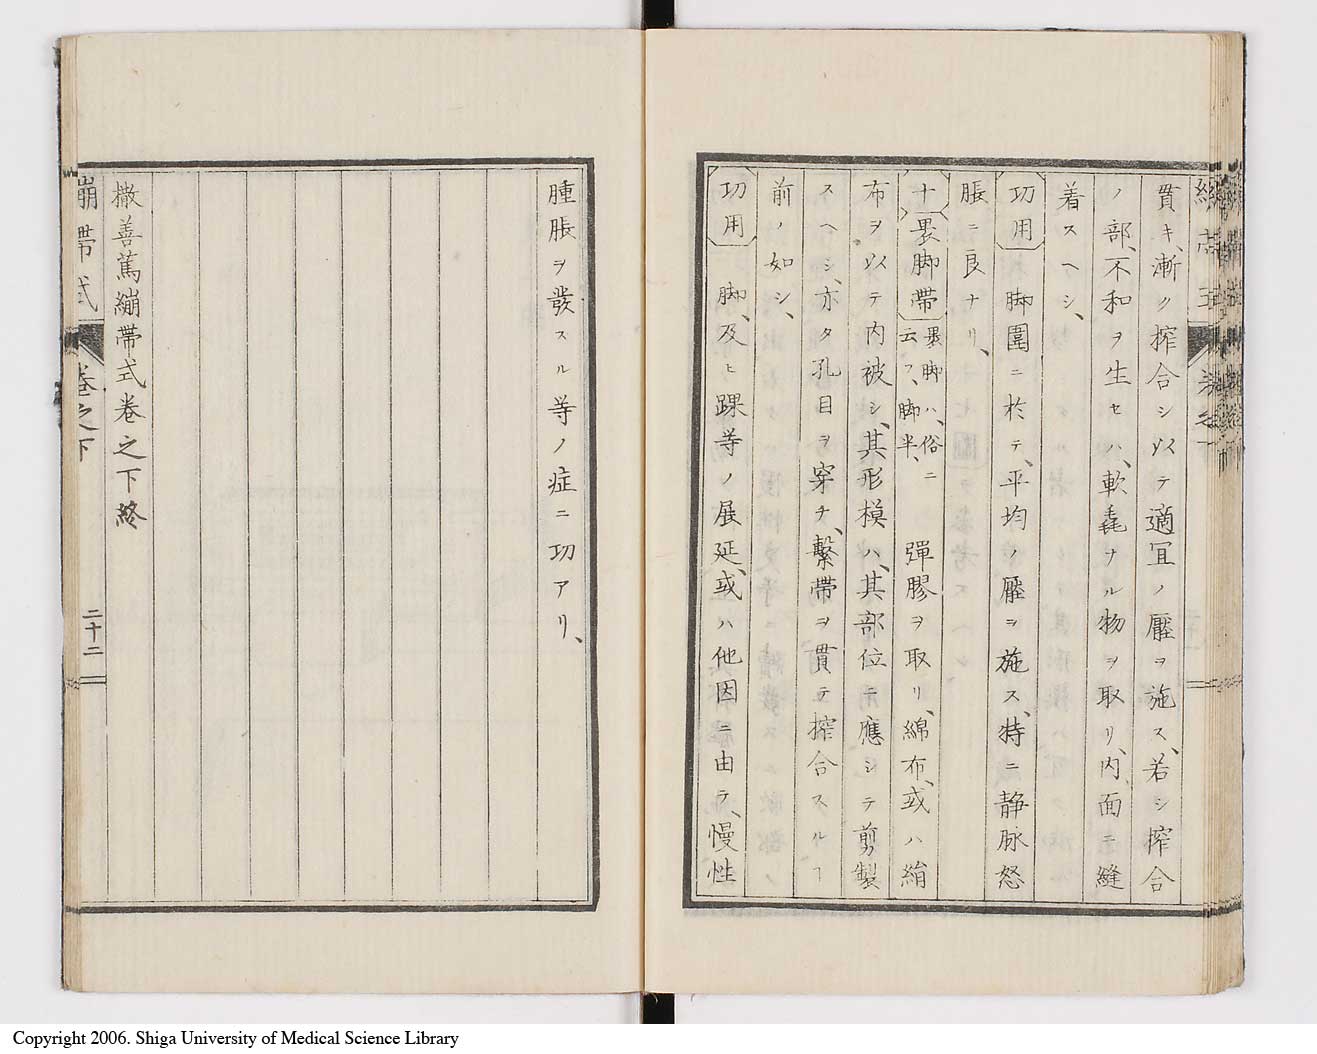 貫キ、漸ク搾合シ以テ適宜ノ壓ヲ施ス、若シ搾合
ノ部、不和ヲ生セハ、軟毳ナル物ヲ取リ、内面ニ縫
着スヘシ、
功用 脚圍ニ於テ、平均ノ壓ヲ施ス、特ニ静脉怒
脹ニ良ナリ、
十 褁脚帶 褁脚ハ、俗ニ
云フ、脚半、
彈膠ヲ取リ、綿布、或ハ絹
布ヲ以テ内被シ、其形模ハ、其部位ニ應シテ剪製
スヘシ、亦タ孔目ヲ穿チ、繫帶ヲ貫テ搾合スルヿ
前ノ如シ、
功用 脚、及ヒ踝等ノ展延、或ハ他因ニ由テ、慢性
腫脹ヲ發スル等ノ症ニ功アリ、
撒善篤繃帶式卷之下終
繃帶式 卷之下
二十二
Copyright 2006. Shiga University of Medical Science Library